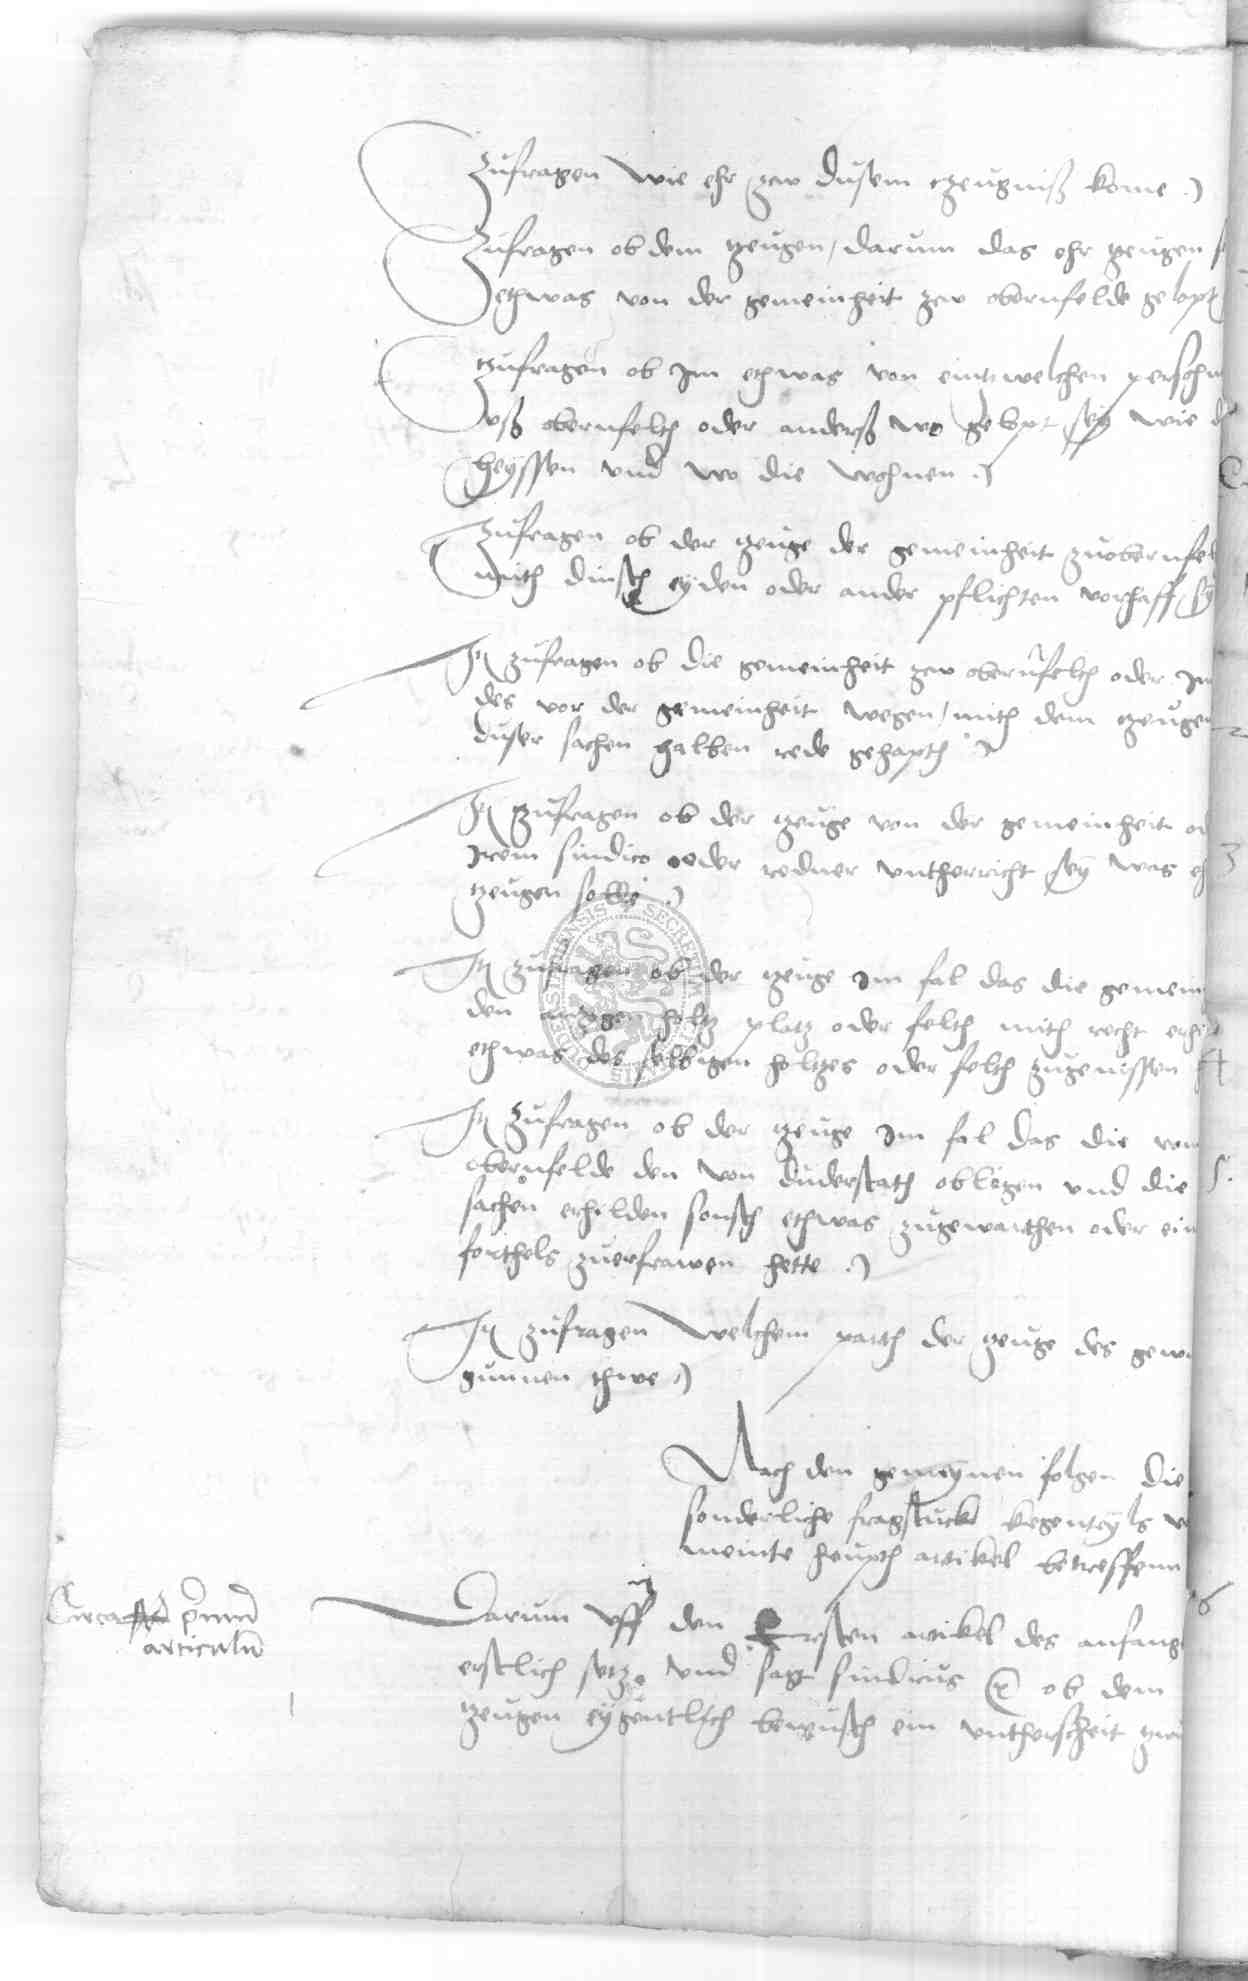 Zufragen wie ehr zew dussem tzeugniß kome
Zufragen ob dem tzeugen / darum das ehr tzeugen
ethwas von der gemeinheit zew obernfelde gelopt
tzufragen ob Im ethwas von eintwelchen perschn
uß obernfelth oder anderß wo gelopt sey wie d
heyssen vnd wo die wohnen
Zufragen ob der tzeuge der gemeinheit zuobernfel
mith dinsth eyden oder ander pflichten vorhafft sy
It zufragen ob die gemeinheit zew obernfelth oder Im
des vor der gemeinheit wegen / mith dem tzeugen
dusser sachen halben rede gehapth
It zufragen ob der tzeuge von der gemeinheit od
Irem sindico oder redner vntherricht sey was eh
tzeugen solle
It zufragen ob der tzeuge Im fal das die gemein
den holtz platz oder felth mith recht erhilt
ethwas des selbigen holtzes oder felth zugenissen h
It zufragen ob der tzeuge Im fal das die von
obernfelde den von duderstath obligen vnd die
sachen erhilden sonsth ethwas zugewarthen oder ein
forthels zuerfrawen hette
It zufragen welchem parth der tzeuge des gewi
gunnen thwe
Nach den gemeynen folgen die
sonderliche fragstuck kegenteyls v
meinte heupth artikel betreffenn
Circa primum
articulum
Darum vff den Ersten artikel des anfang
erstlich setze vnd sagt sindicus ob dem
tzeugen eygentlich bewusth ein vntherscheit zwi
SECRETUM